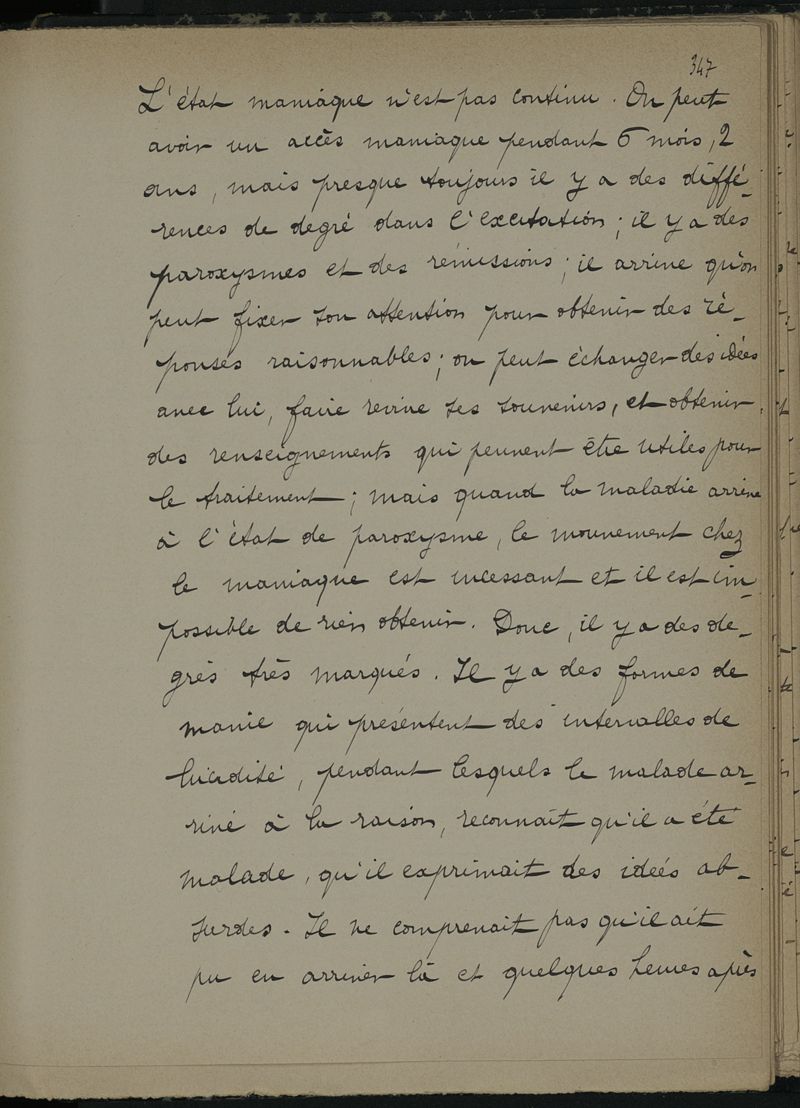 347
L'état maniaque n'est pas continu. On peut
avoir un accès maniaque pendant 6 mois, 2
ans, mais presque toujours il y a des diffé-
rences de degré dans l'excitation; il y a des
paroxysmes et des rémissions; il arrive qu'on
peut fixer son attention pour obtenir des ré-
ponses raisonnables; on peut échanger des idées
avec lui, faire revivre ses souvenirs, et obtenir
des renseignements qui peuvent être utiles pour
le traitement; mais quand la maladie arrive
à l'état de paroxysme, le mouvement chez
le maniaque est incessant et il est im-
possible de rien obtenir. Donc, il y a des de-
grés très marqués. Il y a des formes de
manie qui présentent des intervalles de
lucidité, pendant lesquels le malade ar-
rivé à la raison, reconnaît qu'il a été
malade, qu'il exprimait des idées ab-
surdes. Il ne comprenait pas qu'il ait
pu en arriver là et quelques heures après